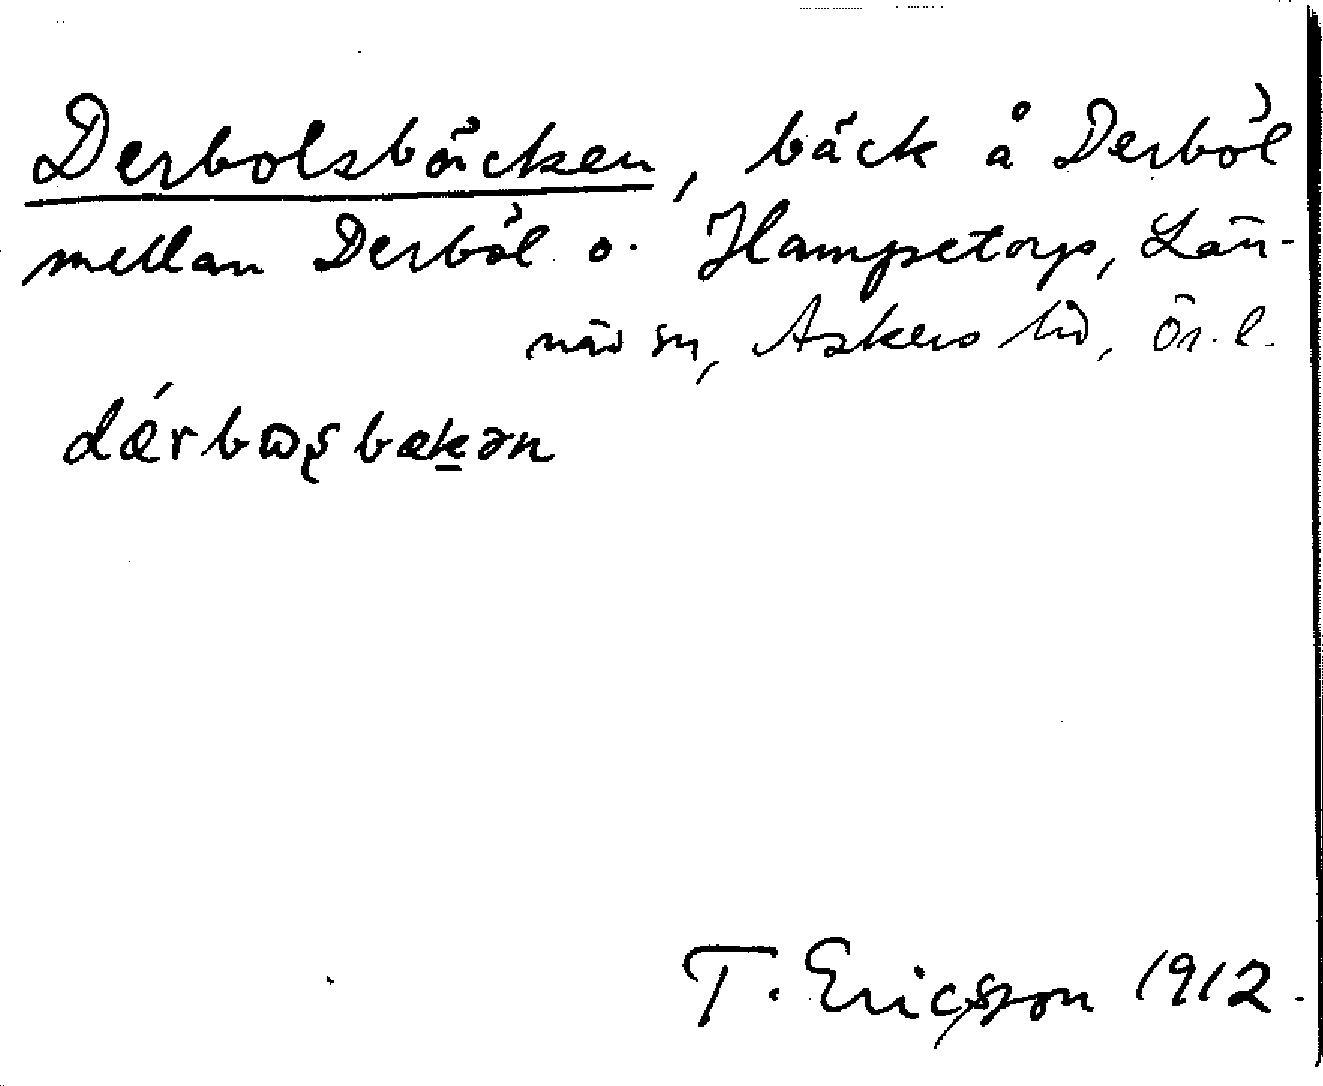 Derbolsbäcken, bäck å Derbŏl
mellan Derbŏl o. Hampetorp, Län-
näs sn, Askers hd, Ör. l.
dǽrbɷʂbæk̲ən
T. Ericsson 1912.